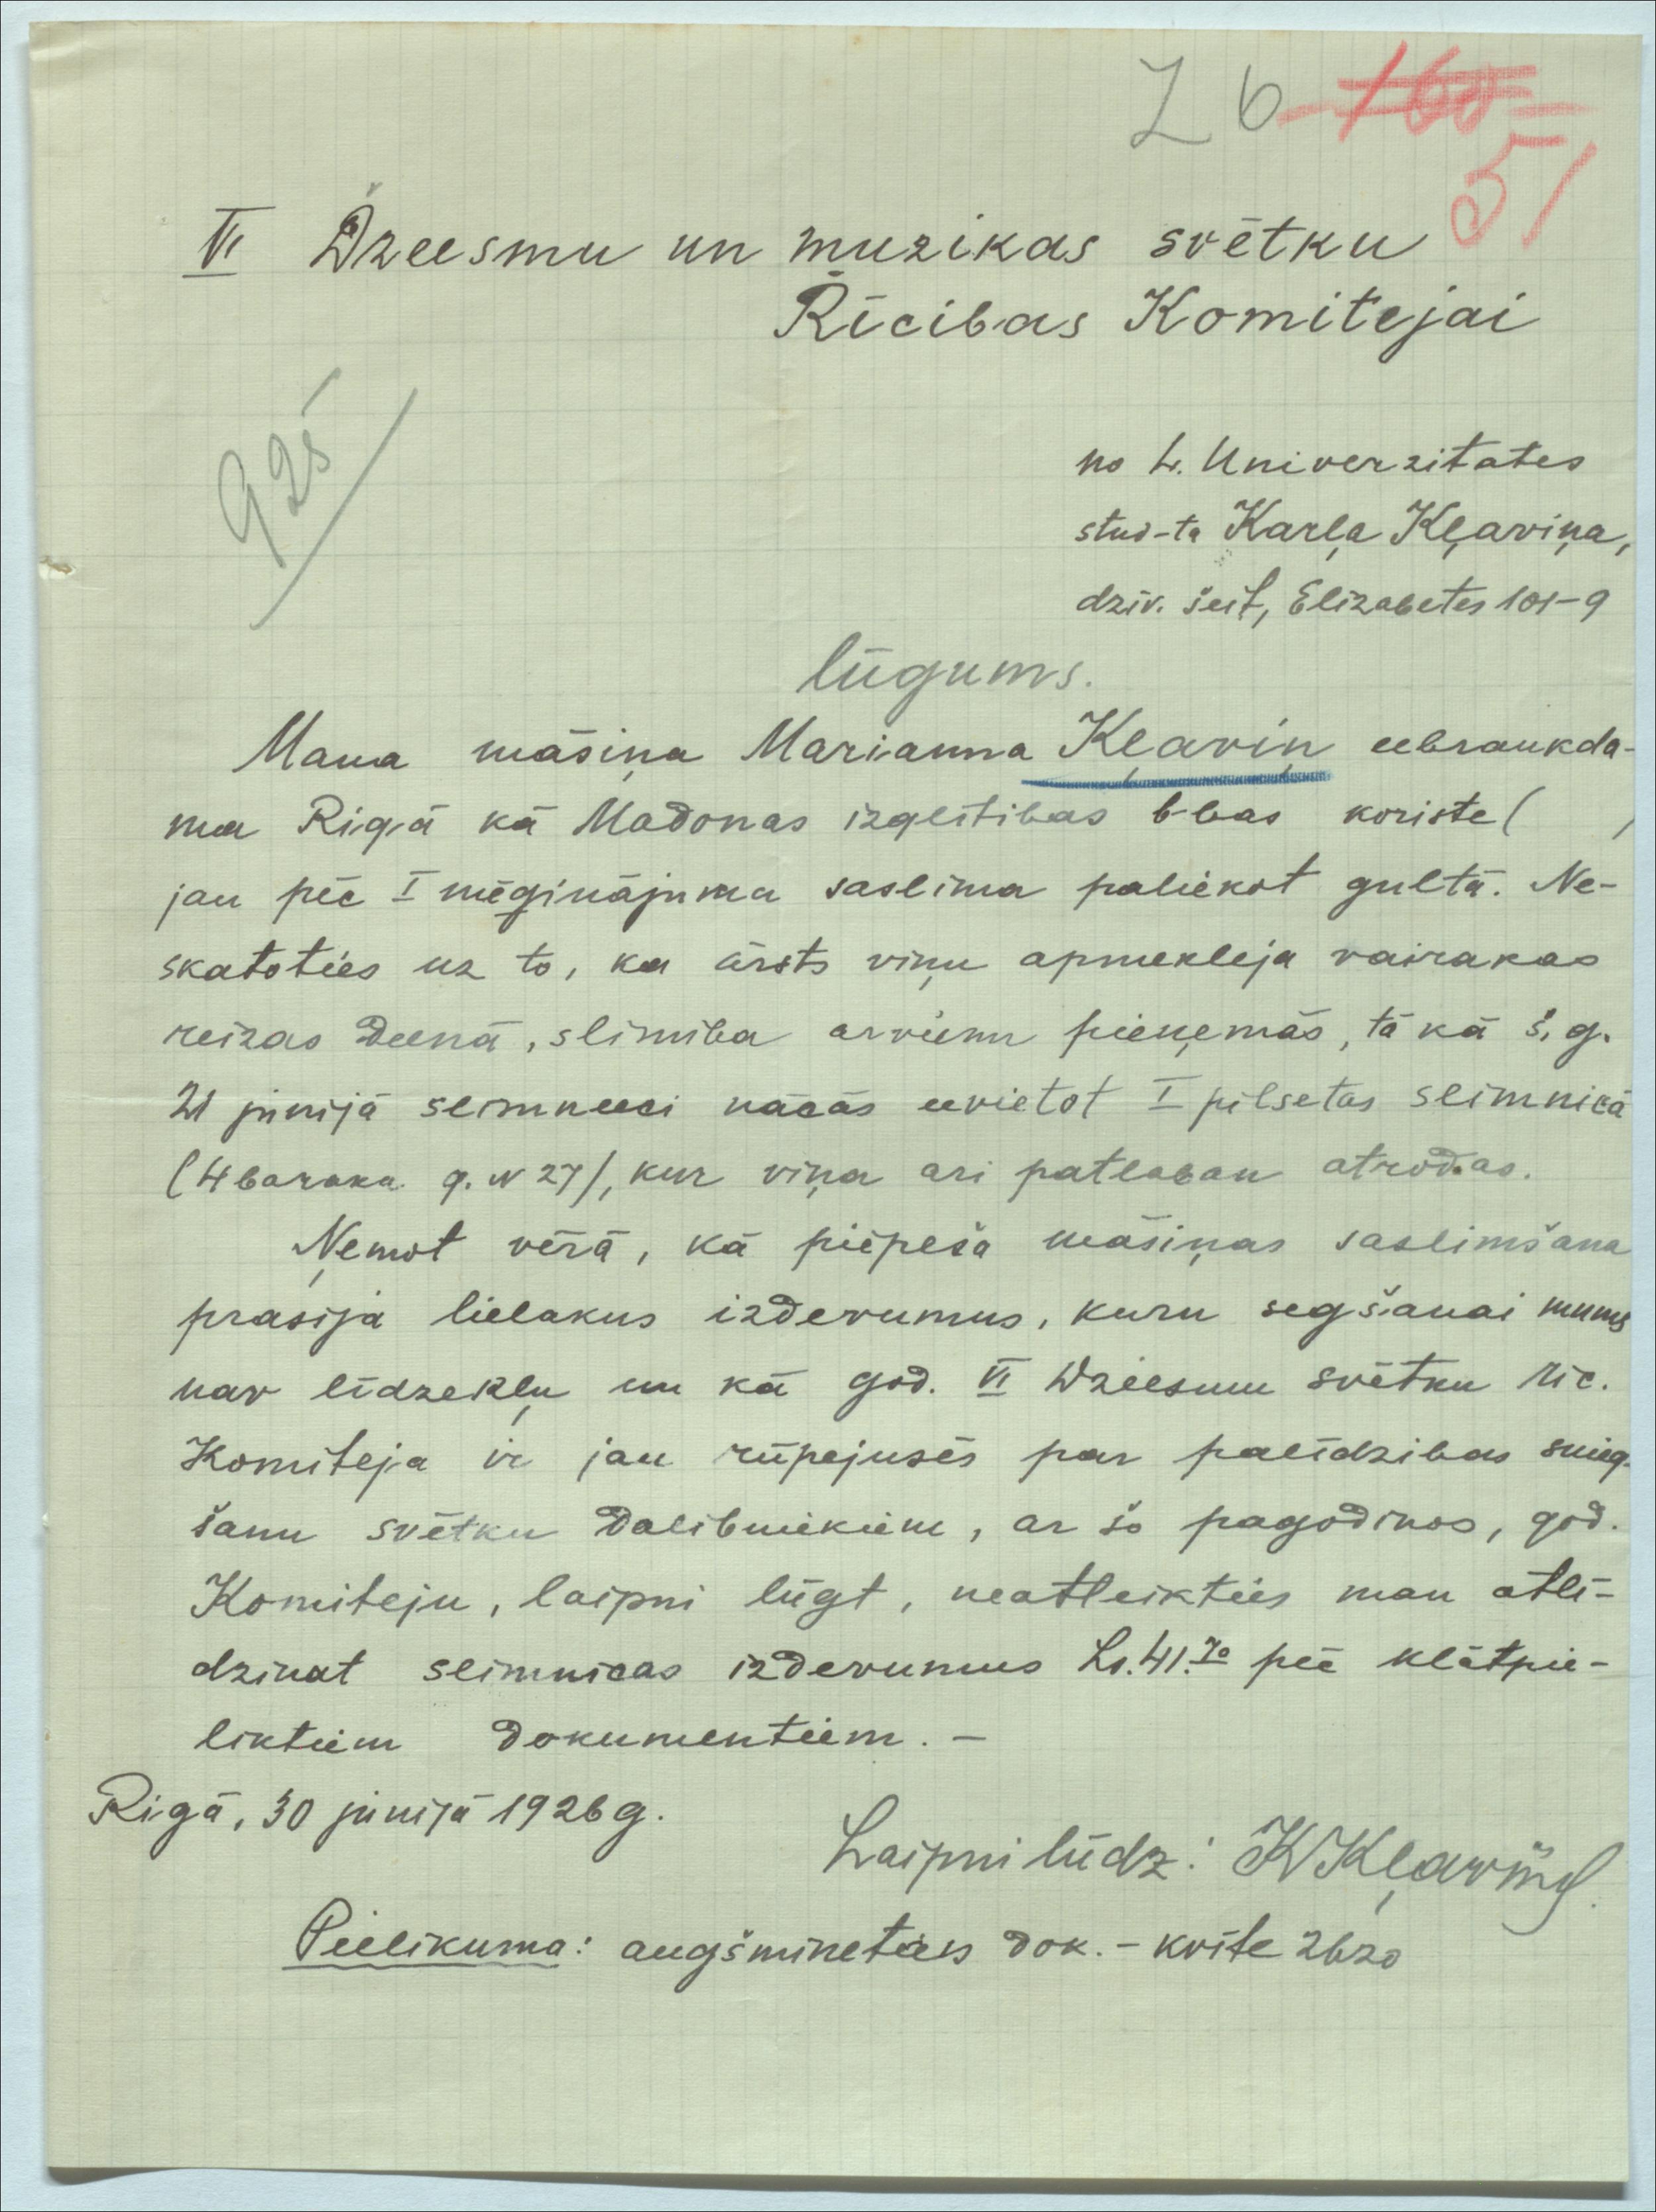 L 6 160
51
VI Dzeesmu un muzikas svētku
Rīcibas Komitejai
925
no L. Univerzitates
stud-ta Karļa Kļaviņa,
dziv. šeit, Elizabetes 101-9
lūgums.
Mana māsiņa Marianna Kļaviņ eebraukda-
ma Rigā kā Madonas izglitibas b-bas koriste ( )
jau pēc I mēģinājuma saslima paliekot gultā. Ne-
skatoties uz to, ka ārsts viņu apmekleja vairakas
reizas deenā, slimiba arvienu pieņemās, tā kā š. g.
21 jūnijā slimneeci nācās eevietot I pilsetas slimnicā
(4 baraka g. N 27), kur viņa ari patlaban atrodas.
Ņemot vērā, kā piepeša māsiņas saslimšana
prasija lielakus izdevumus, kuru segšanai mums
nav līdzekļu un kā god. VI Dzeesmu svētku Ric.
Komiteja ir jau rūpejusēs par palīdzibas snieg-
šanu svētku dalibniekiem, ar šo pagodinos, god.
Komiteju, laipni lūgt, neatteikties man atlī-
dzinat slimnicas izdevumus Ls. 41.70 pēc klātpie-
liktiem dokumentiem. -
Rigā, 30 jūnijā 1926 g.
Laipni lūdz: KKļaviņš
Pielikumā: augšminetais dok. - kvīte 2620